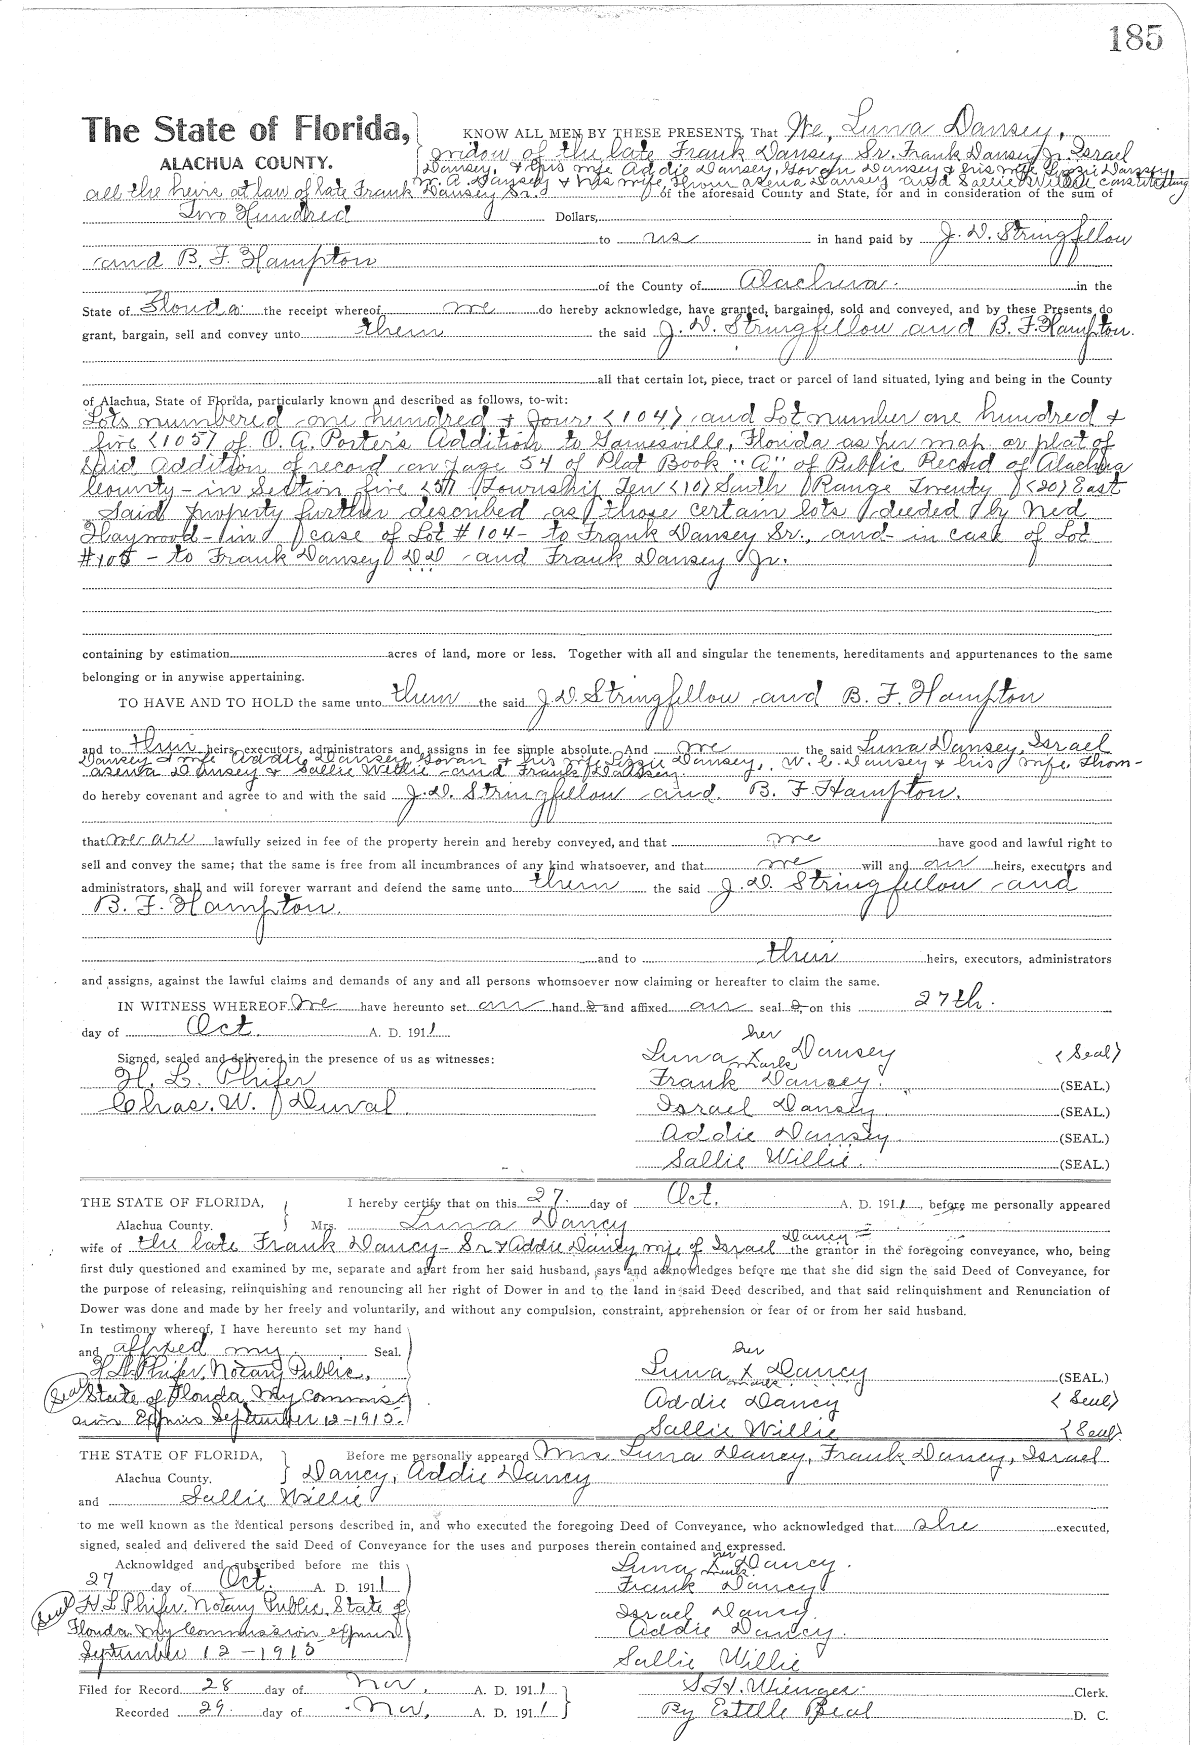 185
The State of Florida,
ALACHUA COUNTY.
KNOW ALL MEN BY THESE PRESENTS, That We, Luna Dansey,
widow of the late Frank Dansey Sr. Frank Dansey Jr. Israel
Dansey, & his wife Addie Dansey, Govan Dansey & his wife Lizzie Dansey,
W. A. Dansey & his wife, Thomasena Dansey and Sallie Willie constituting
all the heirs at law of late Frank Dansey Sr. of the aforesaid County and State, for and in consideration of the sum of
Two Hundred Dollars,
to us in hand paid by J. D. Stringfellow
and B. F. Hampton
of the County of Alachua. in the
State of Florida the receipt whereof we do hereby acknowledge, have granted, bargained, sold and conveyed, and by these Presents do
grant, bargain, sell and convey unto them the said J. D. Stringfellow and B. F. Hampton.
all that certain lot, piece, tract or parcel of land situated, lying and being in the County
of Alachua, State of Florida, particularly known and described as follows, to-wit:
Lots numbered one hundred & four <104> and Lot number one hundred &
five <105> of O. A. Porter's Addition to Gainesville, Florida as per map or plat of
said Addition of record on page 54 of Plat Book "A" of Public Record of Alachua
County - in Section five <5> Township Ten <10> South Range Twenty <20> East
Said property further described as those certain lots deeded by Ned
Haywood - in case of Lot #104 - to Frank Dansey Sr., and in case of Lot
#105 - to Frank Dansey DD and Frank Dansey Jr.
containing by estimation acres of land, more or less. Together with all and singular the tenements, hereditaments and appurtenances to the same
belonging or in anywise appertaining.
TO HAVE AND TO HOLD the same unto them the said J. D. Stringfellow and B. F. Hampton
and to their heirs, executors, administrators and assigns in fee simple absolute. And we the said Luna Dansey, Israel
Dansey & wife Addie Dansey, Govan & his wife Lizzie Dansey, W. C. Dansey & his wife Thom-
asena Dansey & Sallie Willie and Frank Dansey
do hereby covenant and agree to and with the said J. D. Stringfellow and B. F. Hampton.
that we are lawfully seized in fee of the property herein and hereby conveyed, and that we have good and lawful right to
sell and convey the same; that the same is free from all incumbrances of any kind whatsoever, and that we will and our heirs, executors and
administrators, shall and will forever warrant and defend the same unto them the said J. D. Stringfellow and
B. F. Hampton.
and to their heirs, executors, administrators
and assigns, against the lawful claims and demands of any and all persons whomsoever now claiming or hereafter to claim the same.
IN WITNESS WHEREOF We have hereunto set our hand s and affixed our seal s on this 27th.
day of Oct. A. D. 1911
Signed, sealed and delivered in the presence of us as witnesses:
H. L. Phifer
Chas. W. Duval
her
Luna X Dansey <Seal>
mark
Frank Dansey. (SEAL.)
Israel Dansey (SEAL.)
Addie Dansey (SEAL.)
Sallie Willie. (SEAL.)
THE STATE OF FLORIDA,
Alachua County.
I hereby certify that on this 27. day of Oct. A. D. 1911, before me personally appeared
Mrs. Luna Dancy
wife of the late Frank Dancy - Sr & Addie Dancy wife of Israel Dancy the grantor in the foregoing conveyance, who, being
first duly questioned and examined by me, separate and apart from her said husband, says and acknowledges before me that she did sign the said Deed of Conveyance, for
the purpose of releasing, relinquishing and renouncing all her right of Dower in and to the land in said Deed described, and that said relinquishment and Renunciation of
Dower was done and made by her freely and voluntarily, and without any compulsion, constraint, apprehension or fear of or from her said husband.
In testimony whereof, I have hereunto set my hand
and affixed my Seal.
H L Phifer, Notary Public,
Seal State of Florida My Commis-
sion Expires September 12-1915.
her
Luna X Dancy (SEAL)
mark
Addie Dancy <Seal>
Sallie Willie <Seal>
THE STATE OF FLORIDA,
Alachua County.
Before me personally appeared Mrs Luna Dancy, Frank Dancy, Israel
Dancy, Addie Dancy
and Sallie Willie
to me well known as the identical persons described in, and who executed the foregoing Deed of Conveyance, who acknowledged that she executed,
signed, sealed and delivered the said Deed of Conveyance for the uses and purposes therein contained and expressed.
Acknowldged and subscribed before me this
27 day of Oct. A. D. 1911
Seal H L Phifer. Notary Public, State of
Florida. My Commission expires
September 12-1915
her
Luna X Dancy.
mark
Frank Dancy
Israel Dancy.
Addie Dancy.
Sallie Willie
Filed for Record 28 day of Nov. A. D. 1911
Recorded 29. day of Nov. A. D. 1911
S. H. Wienges Clerk.
By Estelle Beal D. C.